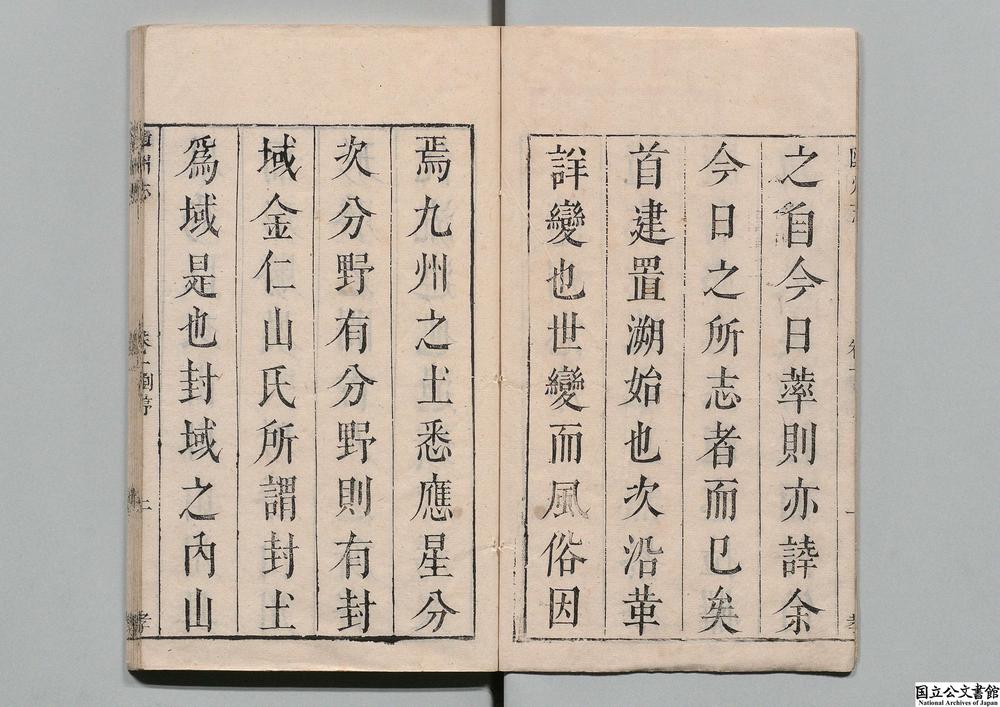 之自今日葶則亦誖余
今日之所志者而已矣
首建置溯始也次沿革
詳變也世變而風俗因
焉九州之土悉應星分
次分野有分野則有封
域金仁山氏所謂封土
為域是也封域之內山
国立公文書館
National Archives of Japan